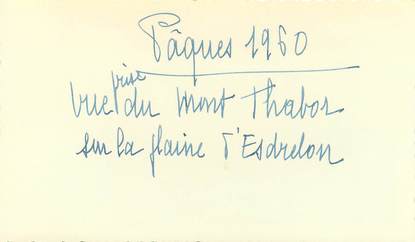 Pâques 1960
vue prise du Mont Thabor
sur la plaine d'Esdrelon